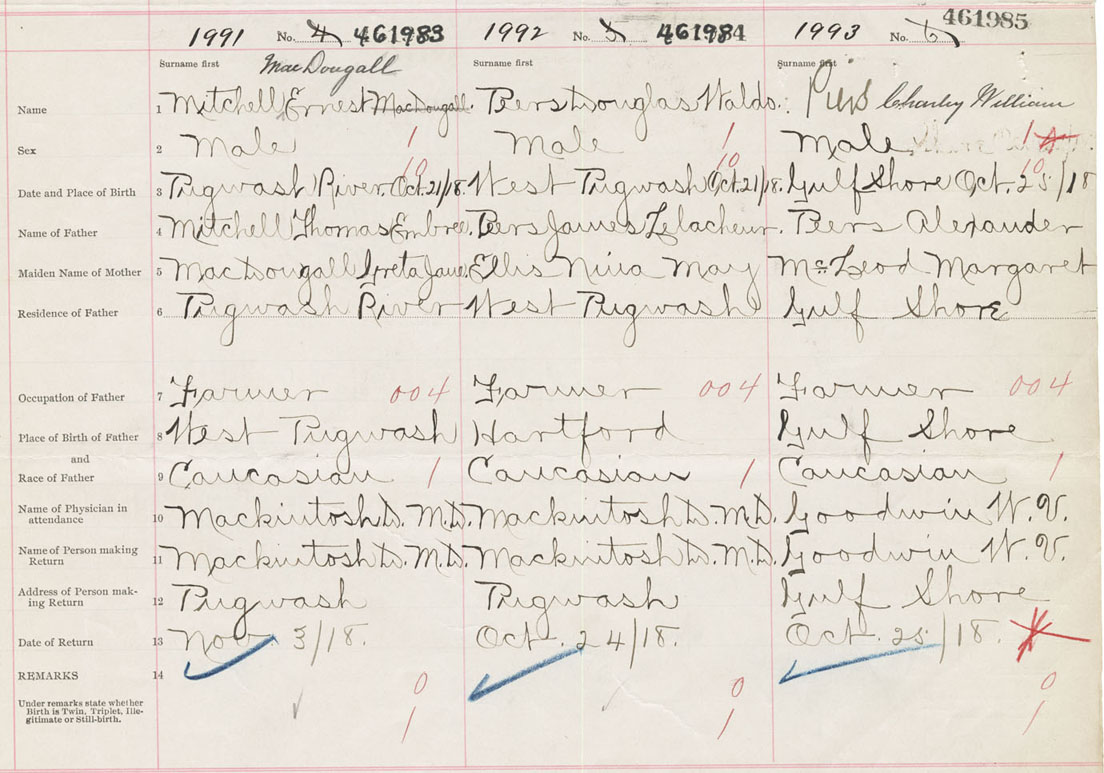 1991 No. 4 461983 1992 No. 5 461984 1993 No. 6 461985
Surname first MacDougall Surname first Surname first
Name 1 Mitchell, Ernest MacDougall. Peers Douglas Waldo. Piers Charley William
Sex 2 Male 1 Male 1 Male 1
10 10 10
Date and Place of Birth 3 Pugwash River. Oct. 21/18. West Pugwash Oct. 21/18. Gulf Shore Oct. 25/18
Name of Father 4 Mitchell Thomas Embree. Peers James Lelacheur. Peers Alexander
Maiden Name of Mother 5 MacDougall Greta Jane. Ellis Nina May McLeod Margaret
Residence of Father 6 Pugwash River West Pugwash Gulf Shore
Occupation of Father 7 Farmer 004 Farmer 004 Farmer 004
Place of Birth of Father 8 West Pugwash Hartford Gulf Shore
and
Race of Father 9 Caucasian 1 Caucasian 1 Caucasian 1
Name of Physician in
attendance 10 Mackintosh D. M.D. Mackintosh D. M.D. Goodwin W. V.
Name of Person making
Return 11 Mackintosh D. M.D. Mackintosh D. M.D. Goodwin W. V.
Address of Person mak-
ing Return 12 Pugwash Pugwash Gulf Shore
Date of Return 13 Nov. 3/18. Oct. 24/18. Oct. 25/18.
REMARKS 14
0 0 0
Under remarks state whether
Birth is Twin, Triplet, Ille-
gitimate or Still-birth.
1 1 1